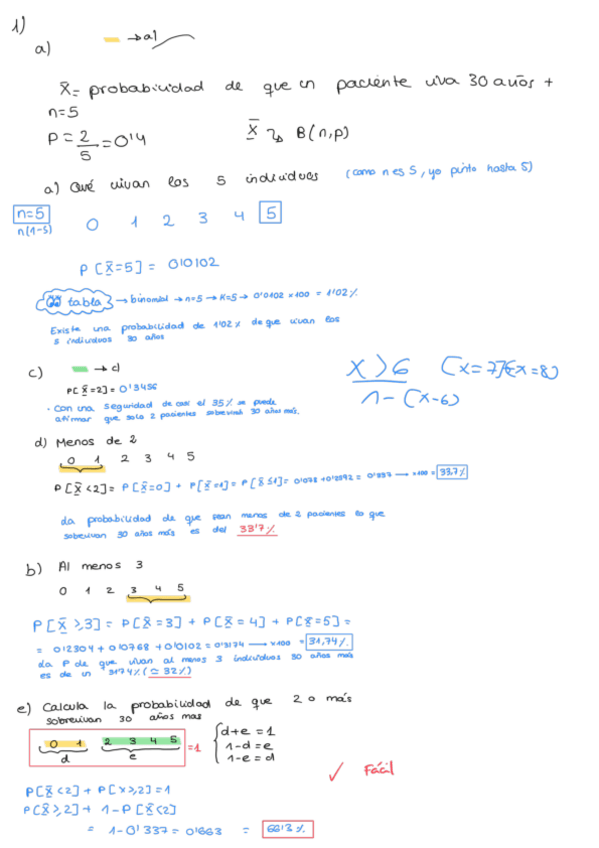 1)
→ a)
a)
X = probabilidad de que un paciente viva 30 años +
n=5
P = 2/5 = 0'4
X B(n,p)
a) Qué vivan los 5 individuos (como n es 5, yo pinto hasta 5)
n=5
n(1-5)
0 1 2 3 4 5
P[X=5] = 0'0102
tabla → binomial → n=5 → K=5 → 0'0102 x100 = 1'02%
Existe una probabilidad de 1'02% de que vivan los
5 individuos 30 años
c) → c)
P[X=2] = 0'3456
· Con una seguridad de casi el 35% se puede
afirmar que solo 2 pacientes sobrevivan 30 años más.
X > 6 (x=7) (x=8)
1 - (x-6)
d) Menos de 2
0 1 2 3 4 5
P[X<2] = P[X=0] + P[X=1] = P[X≤1] = 0'078 + 0'2592 = 0'337 → x100 = 33,7%
La probabilidad de que sean menos de 2 pacientes lo que
sobrevivan 30 años más es del 33'7%
b) Al menos 3
0 1 2 3 4 5
P[X≥3] = P[X=3] + P[X=4] + P[X=5] =
= 0'2304 + 0'0768 + 0'0102 = 0'3174 → x100 = 31,74%
La P de que vivan al menos 3 individuos 30 años más
es de un 31'74% (≃ 32%)
e) Calcula la probabilidad de que 2 o más
sobrevivan 30 años mas
0 1 2 3 4 5 = 1
d e
d+e = 1
1-d = e
1-e = d
✓ Fácil
P[X<2] + P[X≥2] = 1
P[X≥2] + 1-P[X<2]
= 1-0'337 = 0'663 = 66'3%